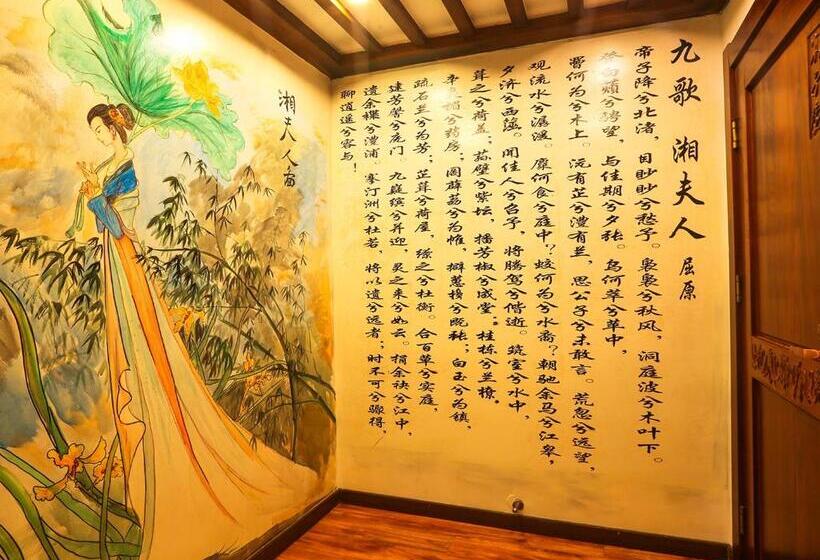 九歌 湘夫人 屈原
帝子降兮北渚,目眇眇兮愁予。袅袅兮秋风,洞庭波兮木叶下。
白薠兮骋望,与佳期兮夕张。鸟何萃兮苹中,
罾何为兮木上。沅有芷兮澧有兰,思公子兮未敢言。荒忽兮远望,
观流水兮潺湲。麋何食兮庭中?蛟何为兮水裔?朝驰余马兮江皋,
夕济兮西澨。闻佳人兮召予,将腾驾兮偕逝。筑室兮水中,
葺之兮荷盖。荪壁兮紫坛,播芳椒兮成堂。桂栋兮兰橑,
辛夷楣兮药房;罔薜荔兮为帷,擗蕙櫋兮既张;白玉兮为镇,
疏石兰兮为芳;芷葺兮荷屋,缭之兮杜衡。合百草兮实庭,
建芳馨兮庑门。九嶷缤兮并迎,灵之来兮如云。捐余袂兮江中,
遗余褋兮澧浦。搴汀洲兮杜若,将以遗兮远者;时不可兮骤得,
聊逍遥兮容与!
湘夫人